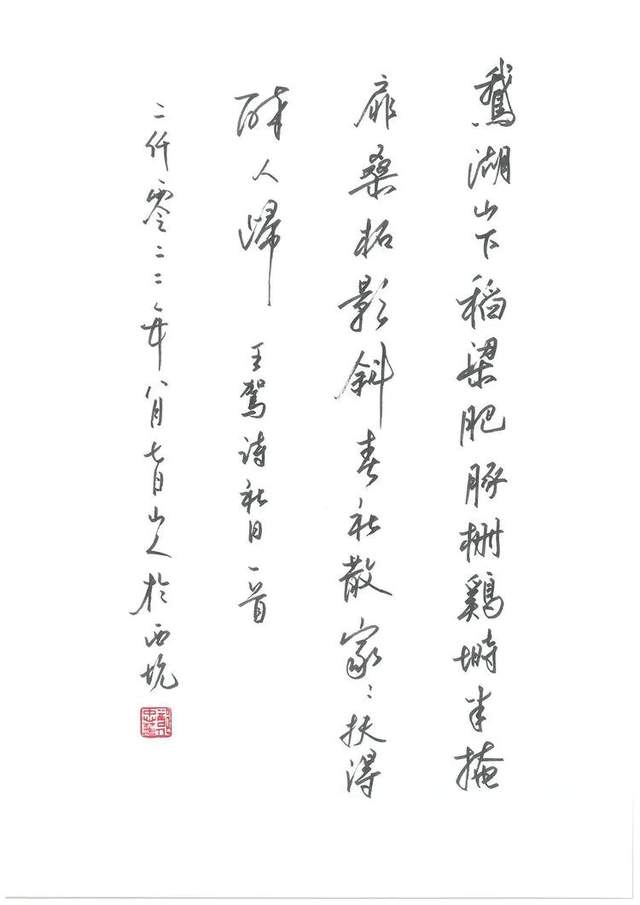 鵞湖山下稻梁肥豚栅鷄塒半掩
扉桑柘影斜春社散家〻扶得
醉人歸 王駕诗社日一首
二仟零二二年八月七日山人於西坑